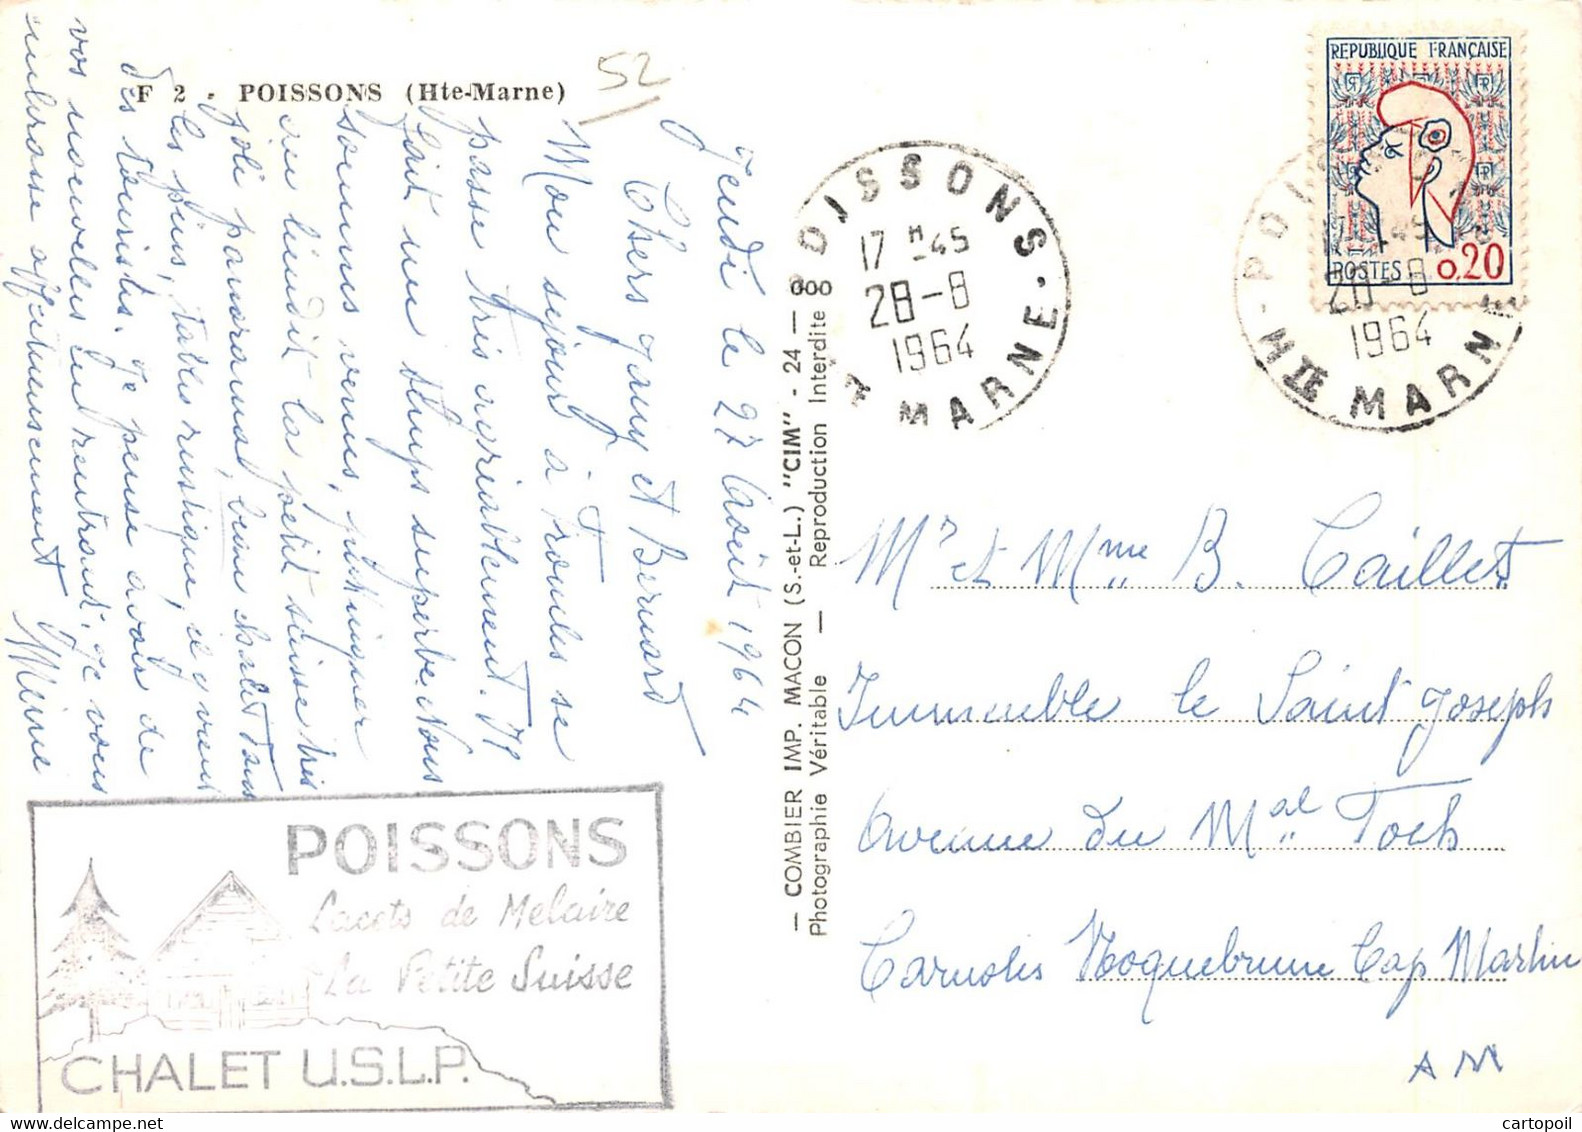 F 2 - POISSONS (Hte-Marne)
52
Jeudi le 27 Août 1964
Chers Jany et Bernard
Mon séjour à Troules se
passe très agréablement. Il
fait un temps superbe. Nous
sommes venus, pique
un lieudit la petite suisse très
joli panorama, bien chalet dans
les pins, tables rustiques, il y vient
des touristes. Je pense avoir de
vos nouvelles en rentrant. Je vous
embrasse affectueusement
Mémé
POISSONS
Lacets de Melaire
La Petite Suisse
CHALET U.S.L.P.
— COMBIER IMP. MACON (S.-et-L.) "CIM" - 24 —
Photographie Véritable — Reproduction Interdite
POISSONS
17 H 45
28-8
1964
MARNE
REPUBLIQUE FRANÇAISE
POSTES 0.20
POISSONS
17 H 45
28-8
1964
HTE MARNE
Mr et Mme B. Caillet
Immeuble le Saint Joseph
Avenue du Mal Foch
Carnolès Roquebrune Cap Martin
AM
cartopoil